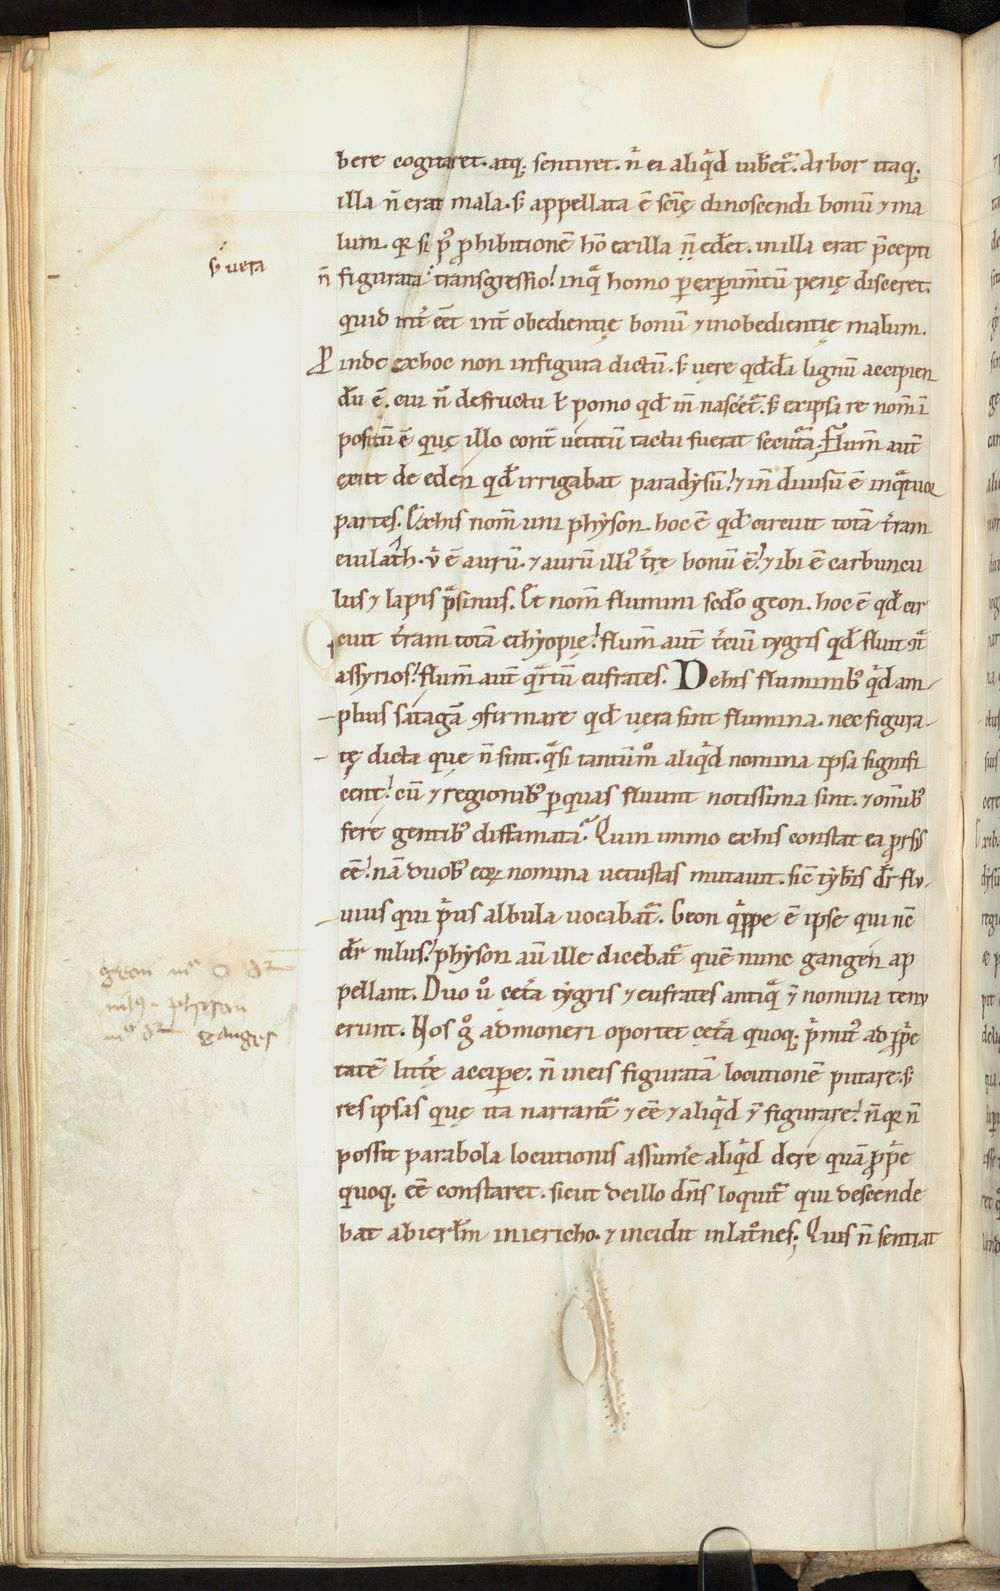 bere cogitaret. atq; sentiret. n̄ ei aliq̇d iub&̄. Arbor itaq;
illa n̄ erat mala. s; appellata ē scię̄ dinoscendi bonū & ma
lum. q̄ si p̊ ꝓhibitionē hō ex illa n̄ ed&̄. in illa erat p̄cepti
s; uera
n̄ figurata transgressio! in q̄ homo p exp̄im̄tū penę disceret.
quid int̄ eēt int̄ obedientię bonū & inobedientię malum.
Proinde ex hoc non in figura dictū. s; uere qđdā lignū accipien
dū ē. cui n̄ de fructu ł pomo qđ in̄ nascēt̄. s; ex ipsa re nom̄ ī
positū ē quę illo cont̄ uetitū tactu fuerat secut̄a; Flum̄ aut̄
exiit de eden qđ irrigabat paradysū! & in̄ diuisū ē in q̄tuor
partes. Ex his nom̄ uni physon. hoc ē qđ circuit totā t̄ram
euilath. ů ē aurū. & aurū illi᾽ t̄rę bonū ē! & ibi ē carbuncu
lus & lapis p̄sinus. Et nom̄ flumini sc̄do geon. hoc ē qđ cir
cuit t̄ram totā ethyopię! flum̄ aut̄ t̄ciū tygris qđ fluit ꝯt̄
assyrios! flum̄ aut̄ q̄rtū eufrates. De his fluminib; q̇d am
plius satagā ꝯfirmare qđ uera sint flumina. nec figura
tę dicta que n̄ sint. q̄si tantūm̊ aliq̇d nomina ipsa signifi
cent! cū & regionib; ꝑ quas fluunt notissima sint. & om̄ib;
fere gentib; diffamata? Quin immo ex his constat ea prorsꝰ
eē! nā duob; eoꝝ nomina uetustas mutauit. sic tyb̄is dr̄ flu
uius qui p̄us albula uocabat̄. Geon q̇ppe ē ipse qui nc̄
dr̄ nilus! physon aū ille dicebat̄ quē nunc gangen ap
geon m° dr̄
nilꝰ. phison
m° dr̄ ganges
pellant. Duo ů cet̄a tygris & eufrates antiq̄ & nomina tenu
erunt. Hos g̊ admoneri oportet cet̄a quoq; p̄mit᾽ ad ꝓp̄e
tatē litt̄ę accipe. n̄ in eis figuratā locutionē putare. s;
res ipsas quę ita narrant̄ & eē & aliq̇d & figurare! n̄ q̄ n̄
possit parabola locutionis assum̄e aliq̇d de re quā ꝓp̄e
quoq; eē constaret. sicut de illo dn̄s loquit̄ qui descende
bat ab ierłm in iericho. & incidit in lat̊nes; Quis n̄ sentiat